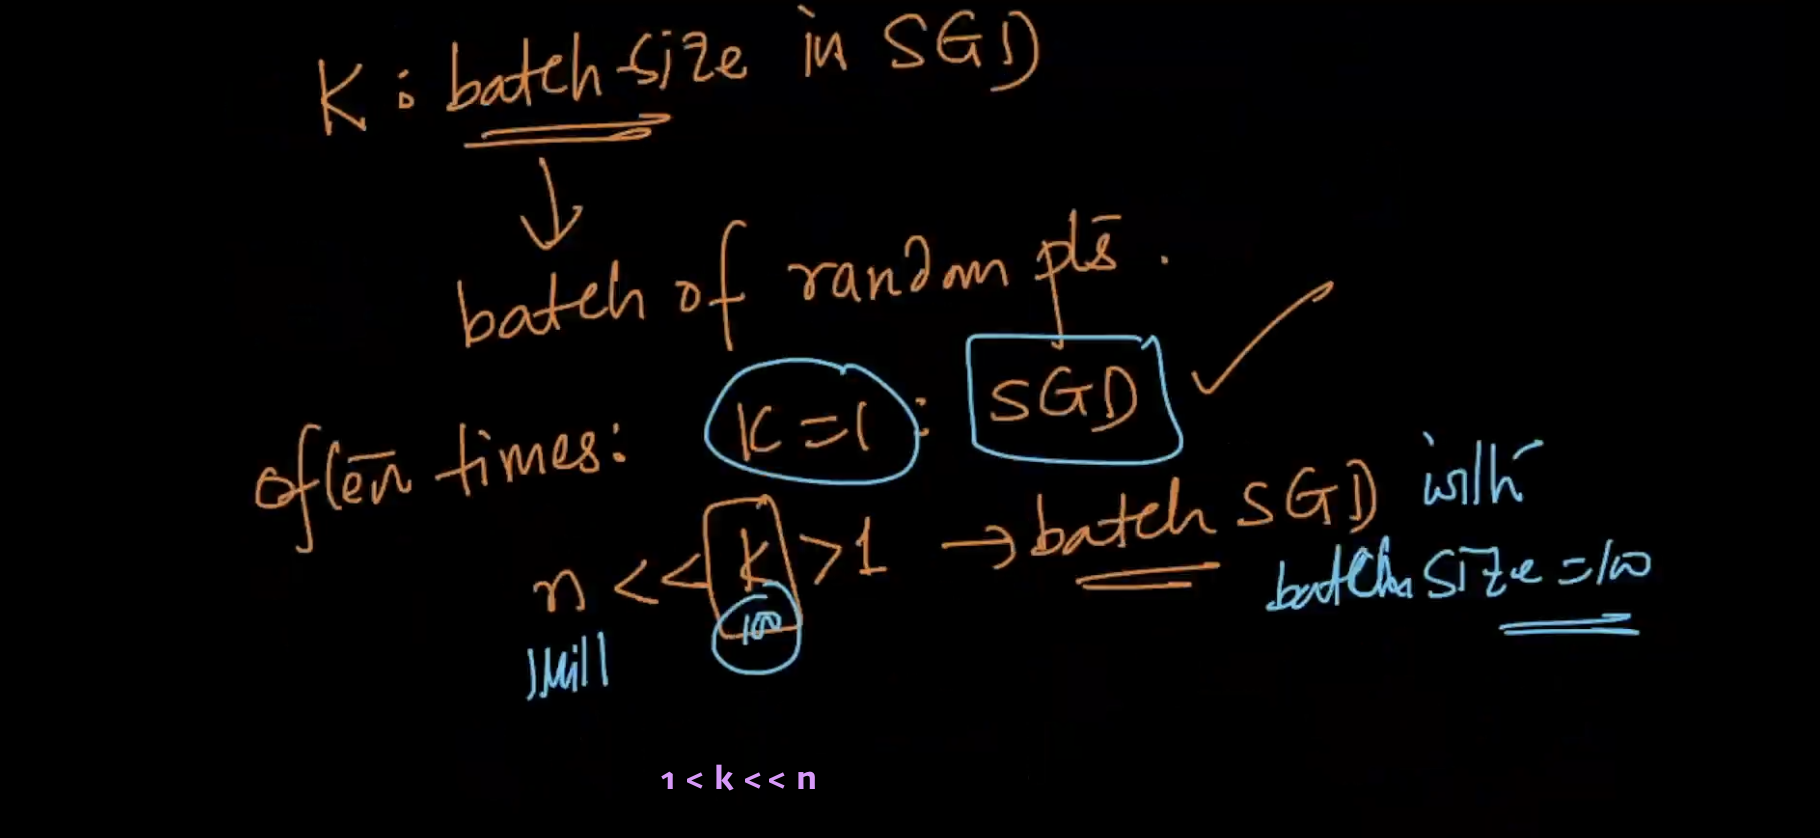 K : batch size in SGD
batch of random pts.
often times: K=1 : SGD
n << k >1 → batch SGD with
1 Mill 100 batch size = 100
1 < k << n